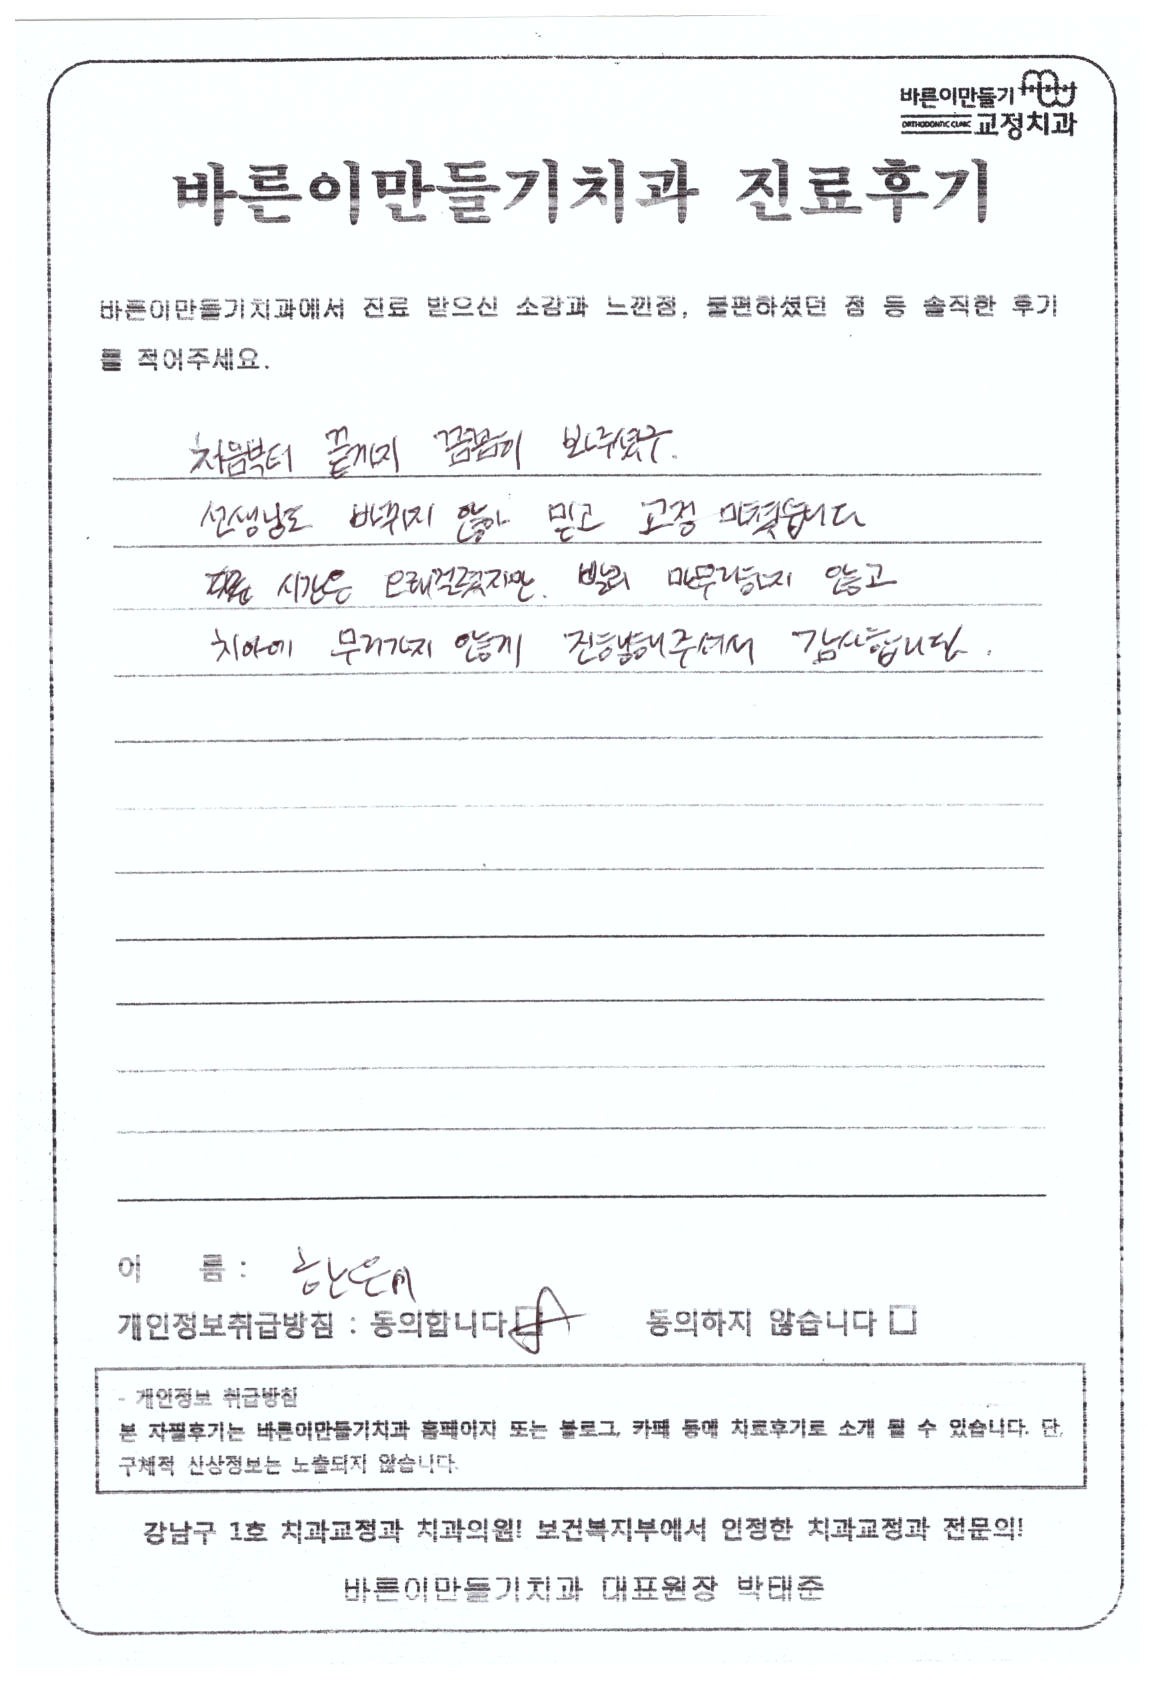 바른이만들기
ORTHODONTIC CLINIC 교정치과
바른이만들기치과 진료후기
바른이만들기치과에서 진료 받으신 소감과 느낀점, 불편하셨던 점 등 솔직한 후기
를 적어주세요.
처음부터 끝까지 꼼꼼히 봐주셨구.
선생님도 바뀌지 않아 믿고 교정 마쳤습니다
시간은 오래걸렸지만. 빨리 마무리하지 않고
치아에 무리가지 않게 진행해주셔서 감사합니다.
이 름 : 한은
개인정보취급방침 : 동의합니다 동의하지 않습니다
- 개인정보 취급방침
본 자필후기는 바른이만들기치과 홈페이지 또는 블로그, 카페 등에 치료후기로 소개 될 수 있습니다. 단,
구체적 신상정보는 노출되지 않습니다.
강남구 1호 치과교정과 치과의원! 보건복지부에서 인정한 치과교정과 전문의!
바른이만들기치과 대표원장 박태준